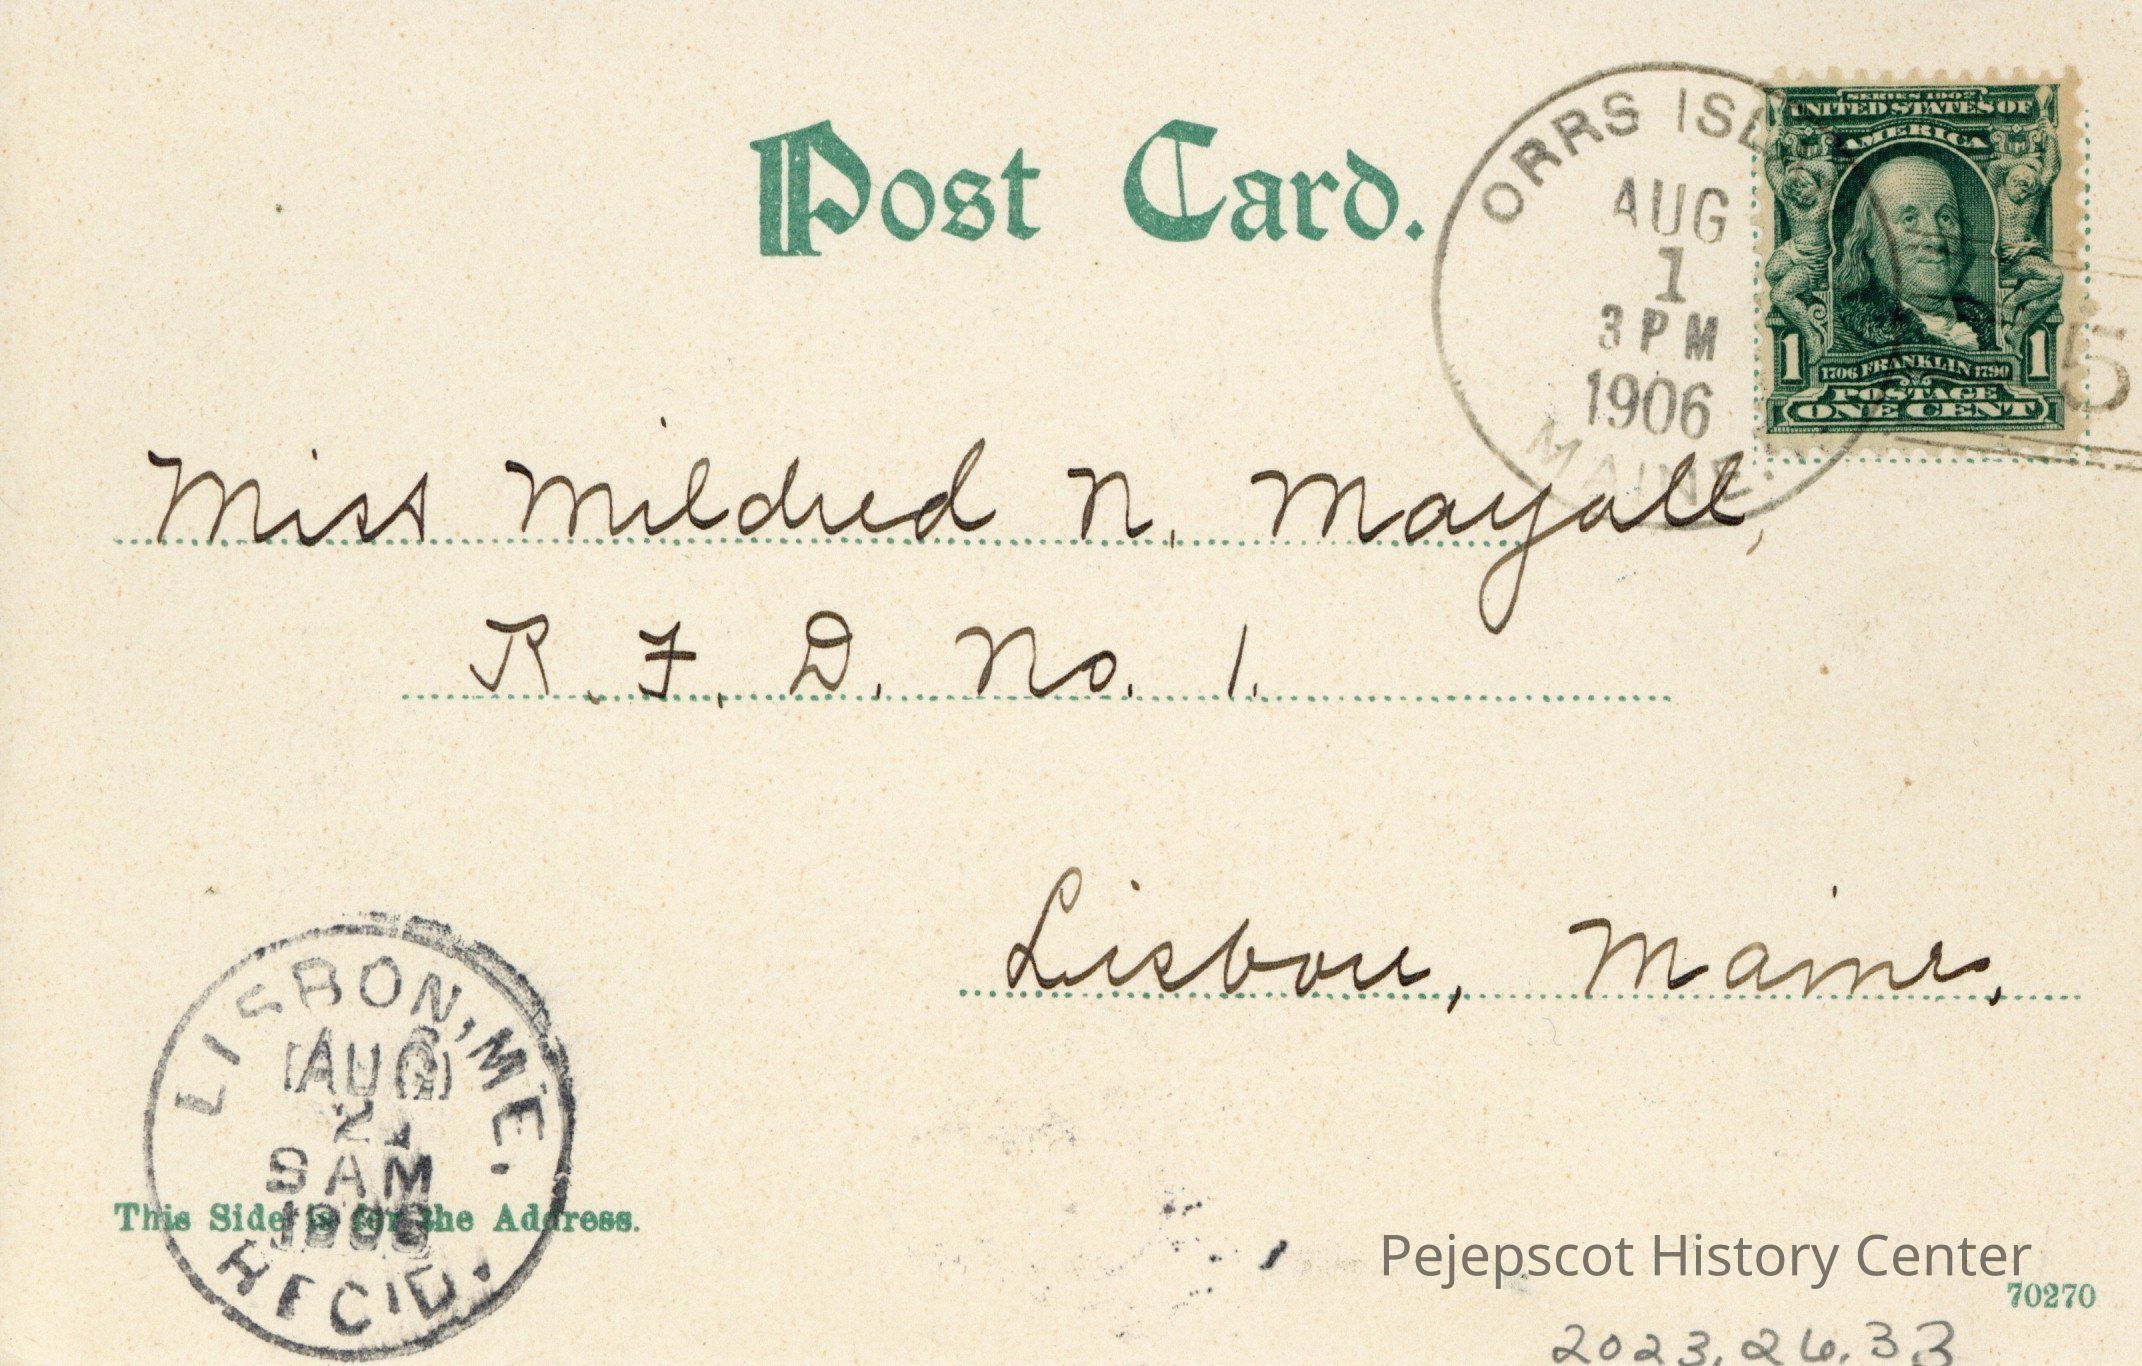 Post Card.
ORRS ISL
AUG
1
3 PM
1906
MAINE.
SERIES 1902
UNITED STATES OF
AMERICA
1 1706 FRANKLIN 1790 1
POSTAGE
ONE CENT
5
Miss Mildred N. Mayall,
R. F. D. No. 1.
Lisbon, Maine,
LISBON, ME.
AUG
2
AM
REC'D.
This Side is for the Address.
Pejepscot History Center
70270
2023.26.33